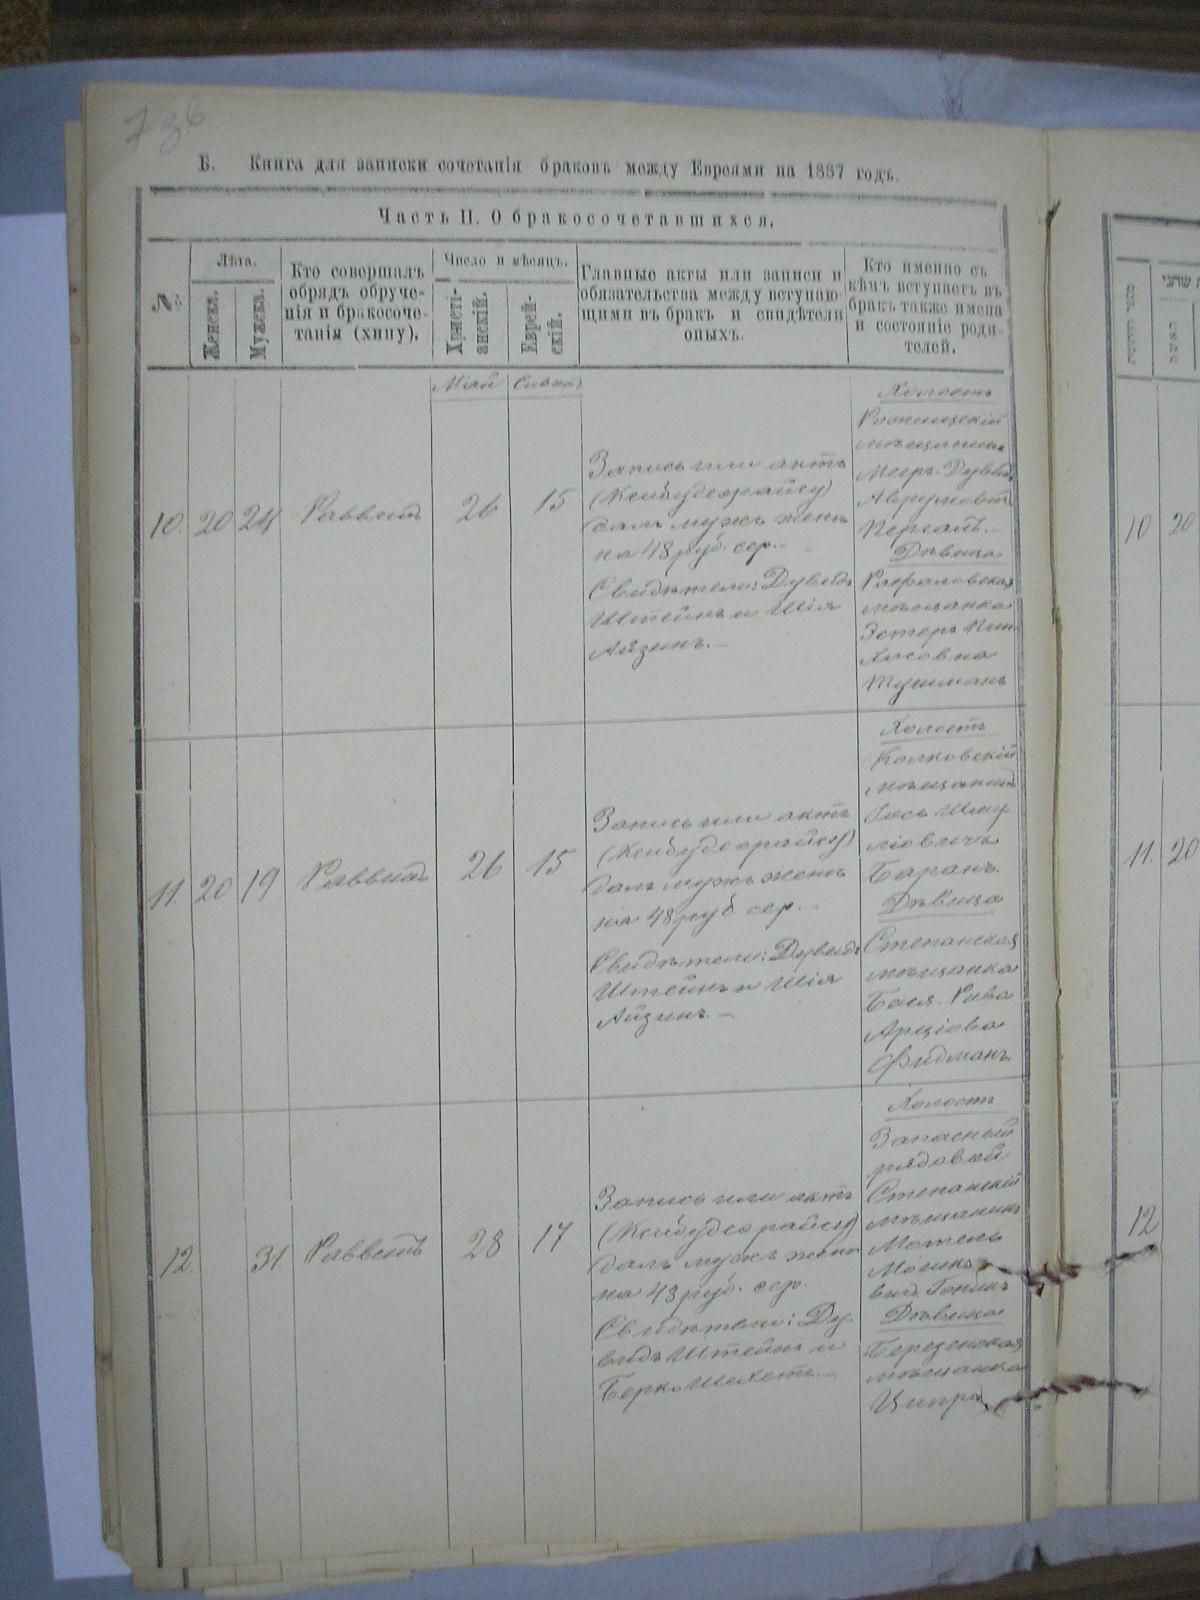 736
Б. Книга для записки сочетанія браковъ между Евреями на 1887 годъ.
Часть II. О бракосочетавшихся.
№
Лѣта.
Женска.
Мужска.
Кто совершалъ
обрядъ обруче-
нія и бракосоче-
танія (хипу).
Число и мѣсяцъ.
Христі-
анскій.
Еврей-
скій.
Главные акты или записи и
обязательства между вступаю-
щими въ бракъ и свидѣтели
оныхъ.
Кто именно съ
кѣмъ вступаетъ въ
бракъ также имена
и состояніе роди-
телей.
Май
10. 20 24 Раввинъ 26 15
Запись или актъ
далъ мужъ женѣ
на 48 руб. сер.—
Свидѣтели: Дувидъ
Штейнъ и Шія
Айзинъ.—
Холостъ
мѣщанинъ
Мееръ-Дувидъ
Дѣвица
Рафаловская
мѣщанка
Эстеръ Пин-
хасовна
11. 20 19 Раввинъ 26 15
Запись или актъ
далъ мужъ женѣ
на 48 руб сер.—
Свидѣтели: Дувидъ
Штейнъ и Шія
Айзинъ.—
Холостъ
Колковскій
мѣщанинъ
Шму-
ліовичъ
Баранъ.
Дѣвица
Степанская
мѣщанка
Бася-Рива
Арціова
Фидманъ
12. 31 Раввинъ 28 17
Запись или актъ
далъ мужъ женѣ
на 48 руб. сер.
Свидѣтели: Ду-
видъ Штейнъ и
Берко
Холостъ
Запасный
рядовой
Степанскій
мѣщанинъ
Мотель
Дѣвица
Березенская
мѣщанка
Ципра
10 20
11. 20
12